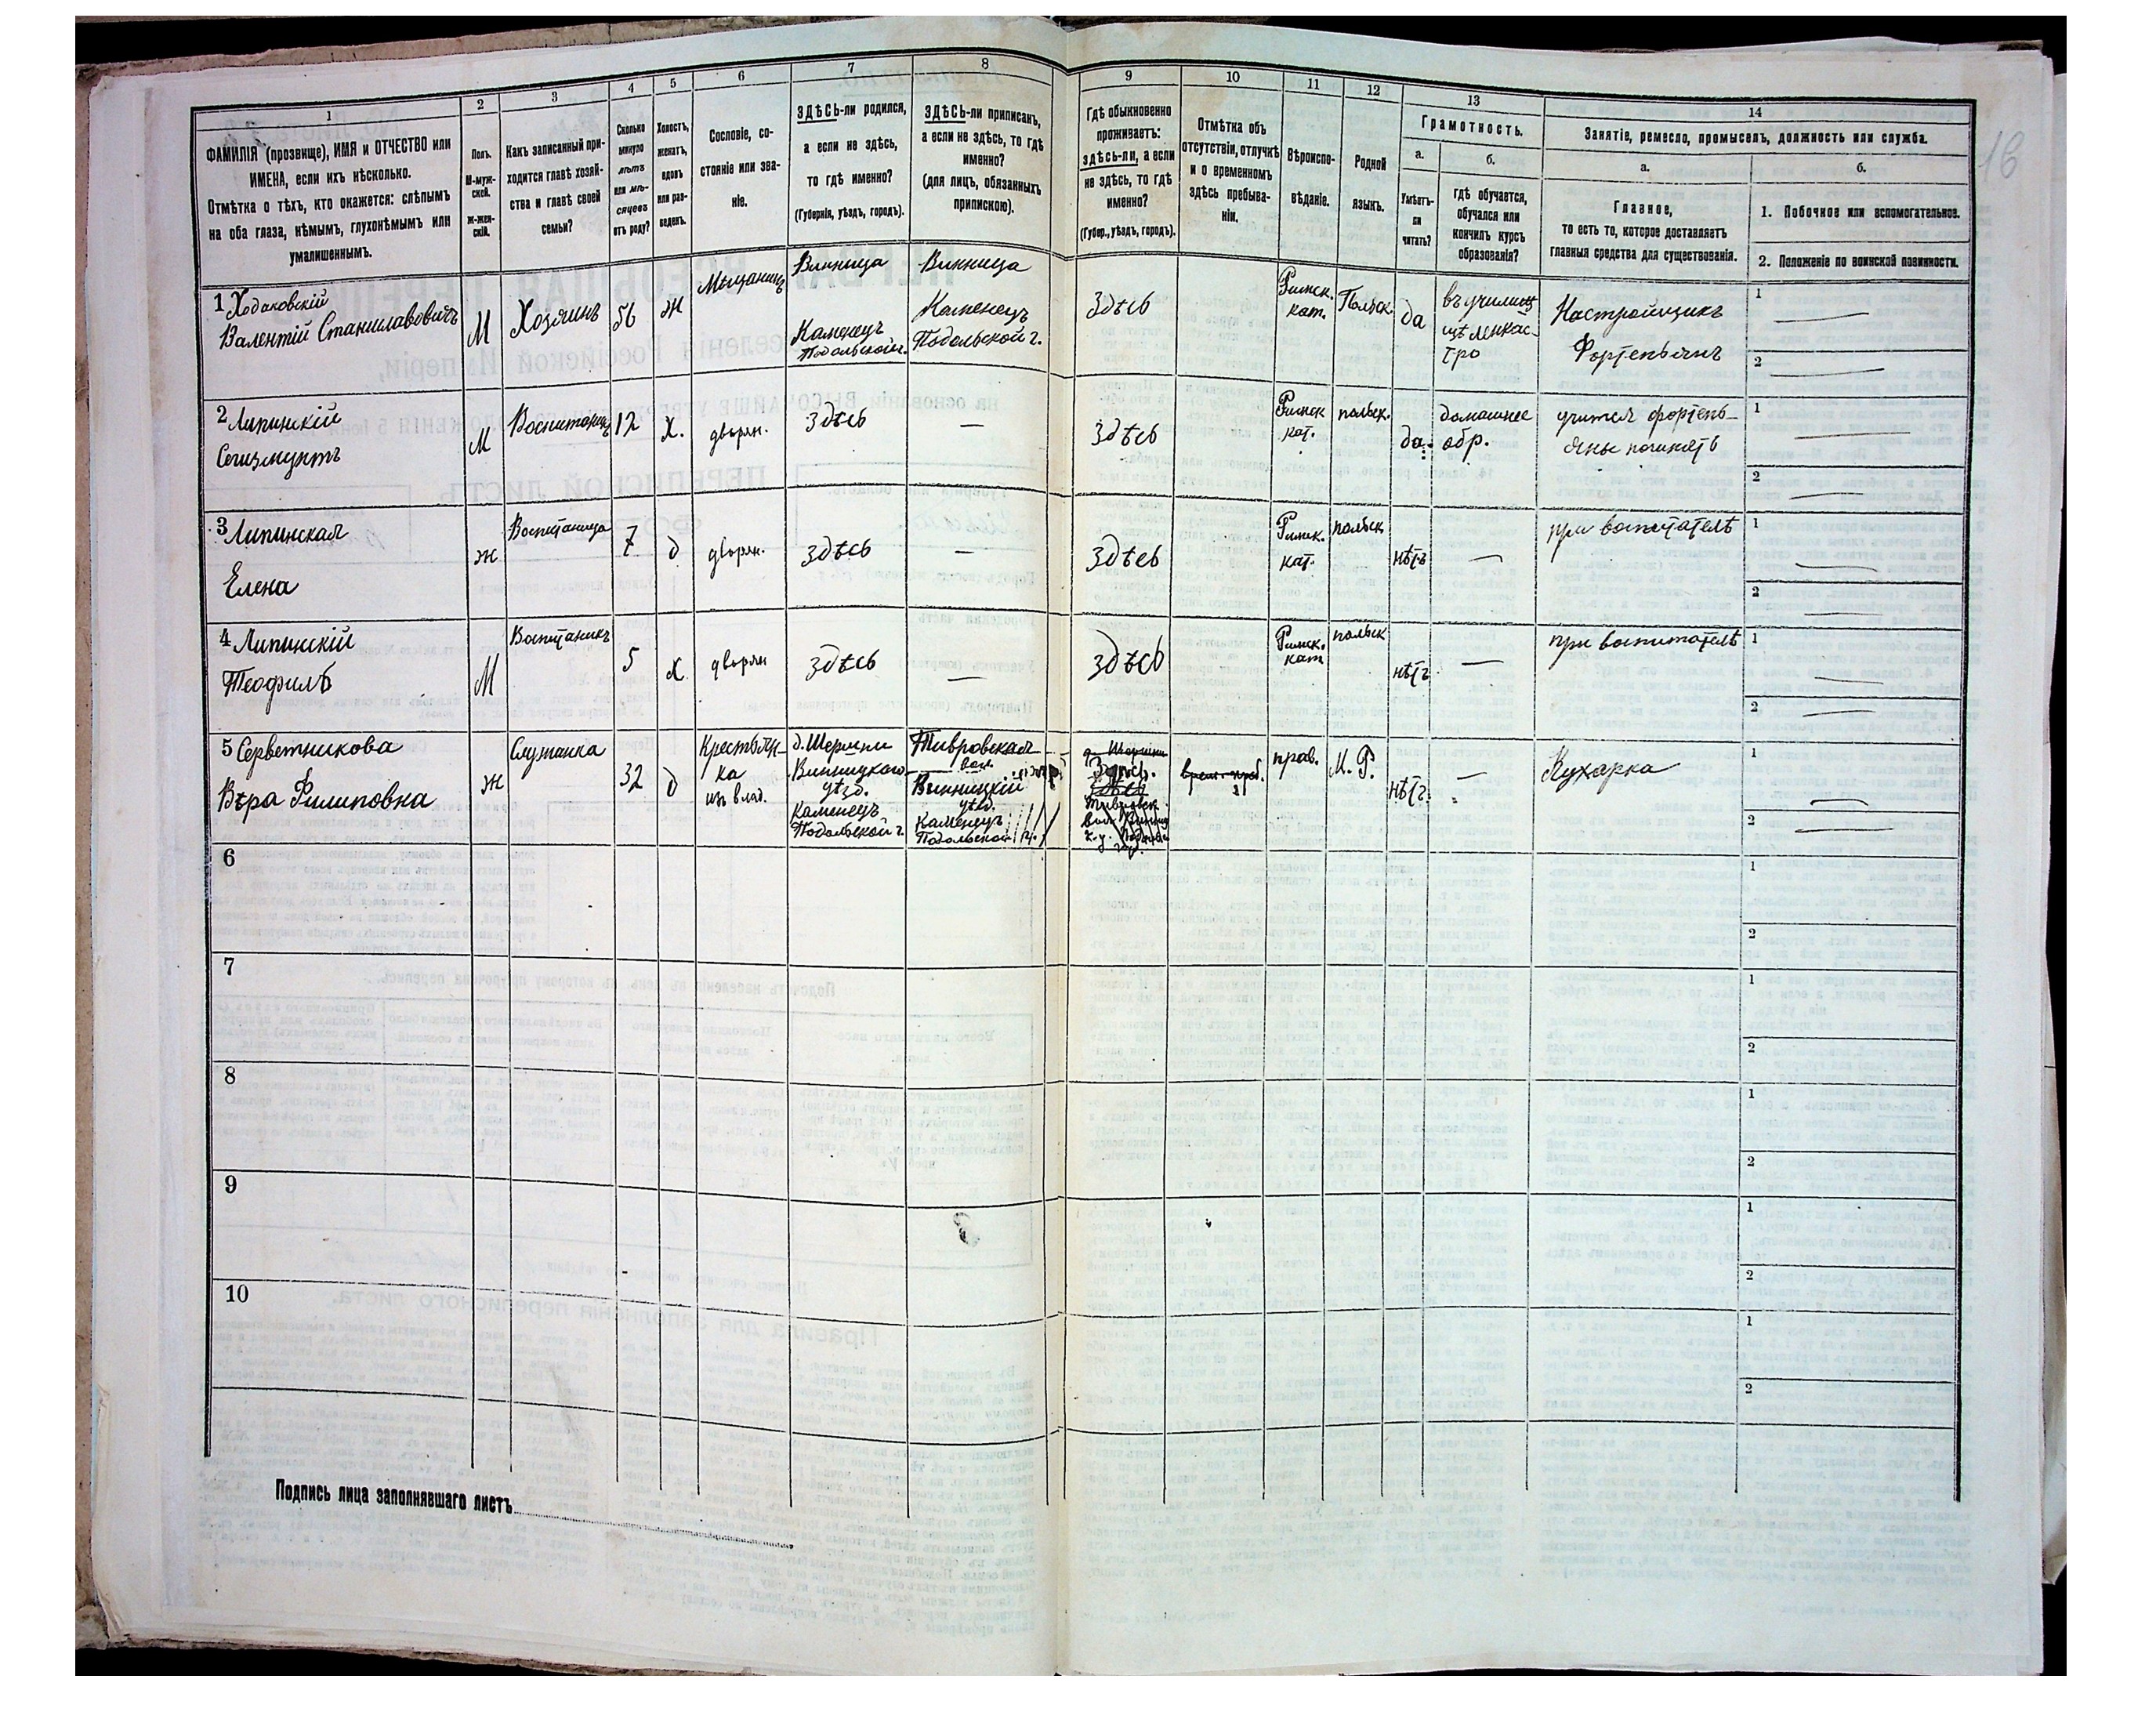 1
2
3
4
5
6
7
8
9
10
11
12
13
14
16
ФАМИЛІЯ (прозвище), ИМЯ и ОТЧЕСТВО или
ИМЕНА, если ихъ нѣсколько.
Отмѣтка о тѣхъ, кто окажется: слѣпымъ
на оба глаза, нѣмымъ, глухонѣмымъ или
умалишеннымъ.
Полъ.
М-муж-
ской.
ж-жен-
скій.
Какъ записанный при-
ходится главѣ хозяй-
ства и главѣ своей
семьи?
Сколько
минуло
лѣтъ
или мѣ-
сяцевъ
отъ роду?
Холостъ,
женатъ,
вдовъ
или раз-
веденъ.
Сословіе, со-
стояніе или зва-
ніе.
ЗДѢСЬ-ли родился,
а если не здѣсь,
то гдѣ именно?
(Губернія, уѣздъ, городъ).
ЗДѢСЬ-ли приписанъ,
а если не здѣсь, то гдѣ
именно?
(для лицъ, обязанныхъ
припискою).
Гдѣ обыкновенно
проживаетъ:
здѣсь-ли, а если
не здѣсь, то гдѣ
именно?
(Губер., уѣздъ, городъ).
Отмѣтка объ
отсутствіи, отлучкѣ
и о временномъ
здѣсь пребыва-
ніи.
Вѣроиспо-
вѣданіе.
Родной
языкъ.
Грамотность.
а.
Умѣетъ-
ли
читать?
б.
гдѣ обучается,
обучался или
кончилъ курсъ
образованія?
Занятіе, ремесло, промыселъ, должность или служба.
а.
Главное,
то есть то, которое доставляетъ
главныя средства для существованія.
б.
1. Побочное или вспомогательное.
2. Положеніе по воинской повинности.
1 Ходаковскій
Валентій Станиславовичъ
М
Хозяинъ
56
ж
Мѣщанинъ
Винница
Каменецъ
Подольской г.
Винница
Каменецъ
Подольской г.
Здѣсь
Римск.
кат.
Польск.
да
въ училищ
щѣ Менкас-
тро
Настройщикъ
Фортепьянъ
1
2
2 Липинскій
Сигизмунтъ
М
Воспитаникъ
12
х.
дворян.
Здѣсь
—
Здѣсь
Римск
кат.
польск.
да.
домашнее
обр.
учится фортепь-
яны починять
1
2
3 Липинская
Елена
ж
Воспитаница
7
д
дворян.
Здѣсь
—
Здѣсь
Римск.
кат.
польск
нѣтъ
—
при воспитателѣ
1
2
4 Липинскій
Теофиль
М
Воспитаникъ
5
х
дворян
Здѣсь
—
Здѣсь
Римск.
кат
польск
нѣтъ
—
при воспитателѣ
1
2
5 Серветникова
Вѣра Филиповна
ж
Служанка
32
д
Крестьян-
ка
изъ влад.
д. Шершни
Винницкого
уѣзд.
Каменецъ
Подольской г.
Тивровская
вол.
Винницкій
уѣзд.
Каменецъ
Подольской г.
д. Шершни
Здѣсь.
Тивровск.
вол. Винниц
прав.
М. Р.
нѣтъ.
—
Кухарка
1
2
6
1
2
7
1
2
8
1
2
9
1
2
10
1
2
Подпись лица заполнявшаго листъ